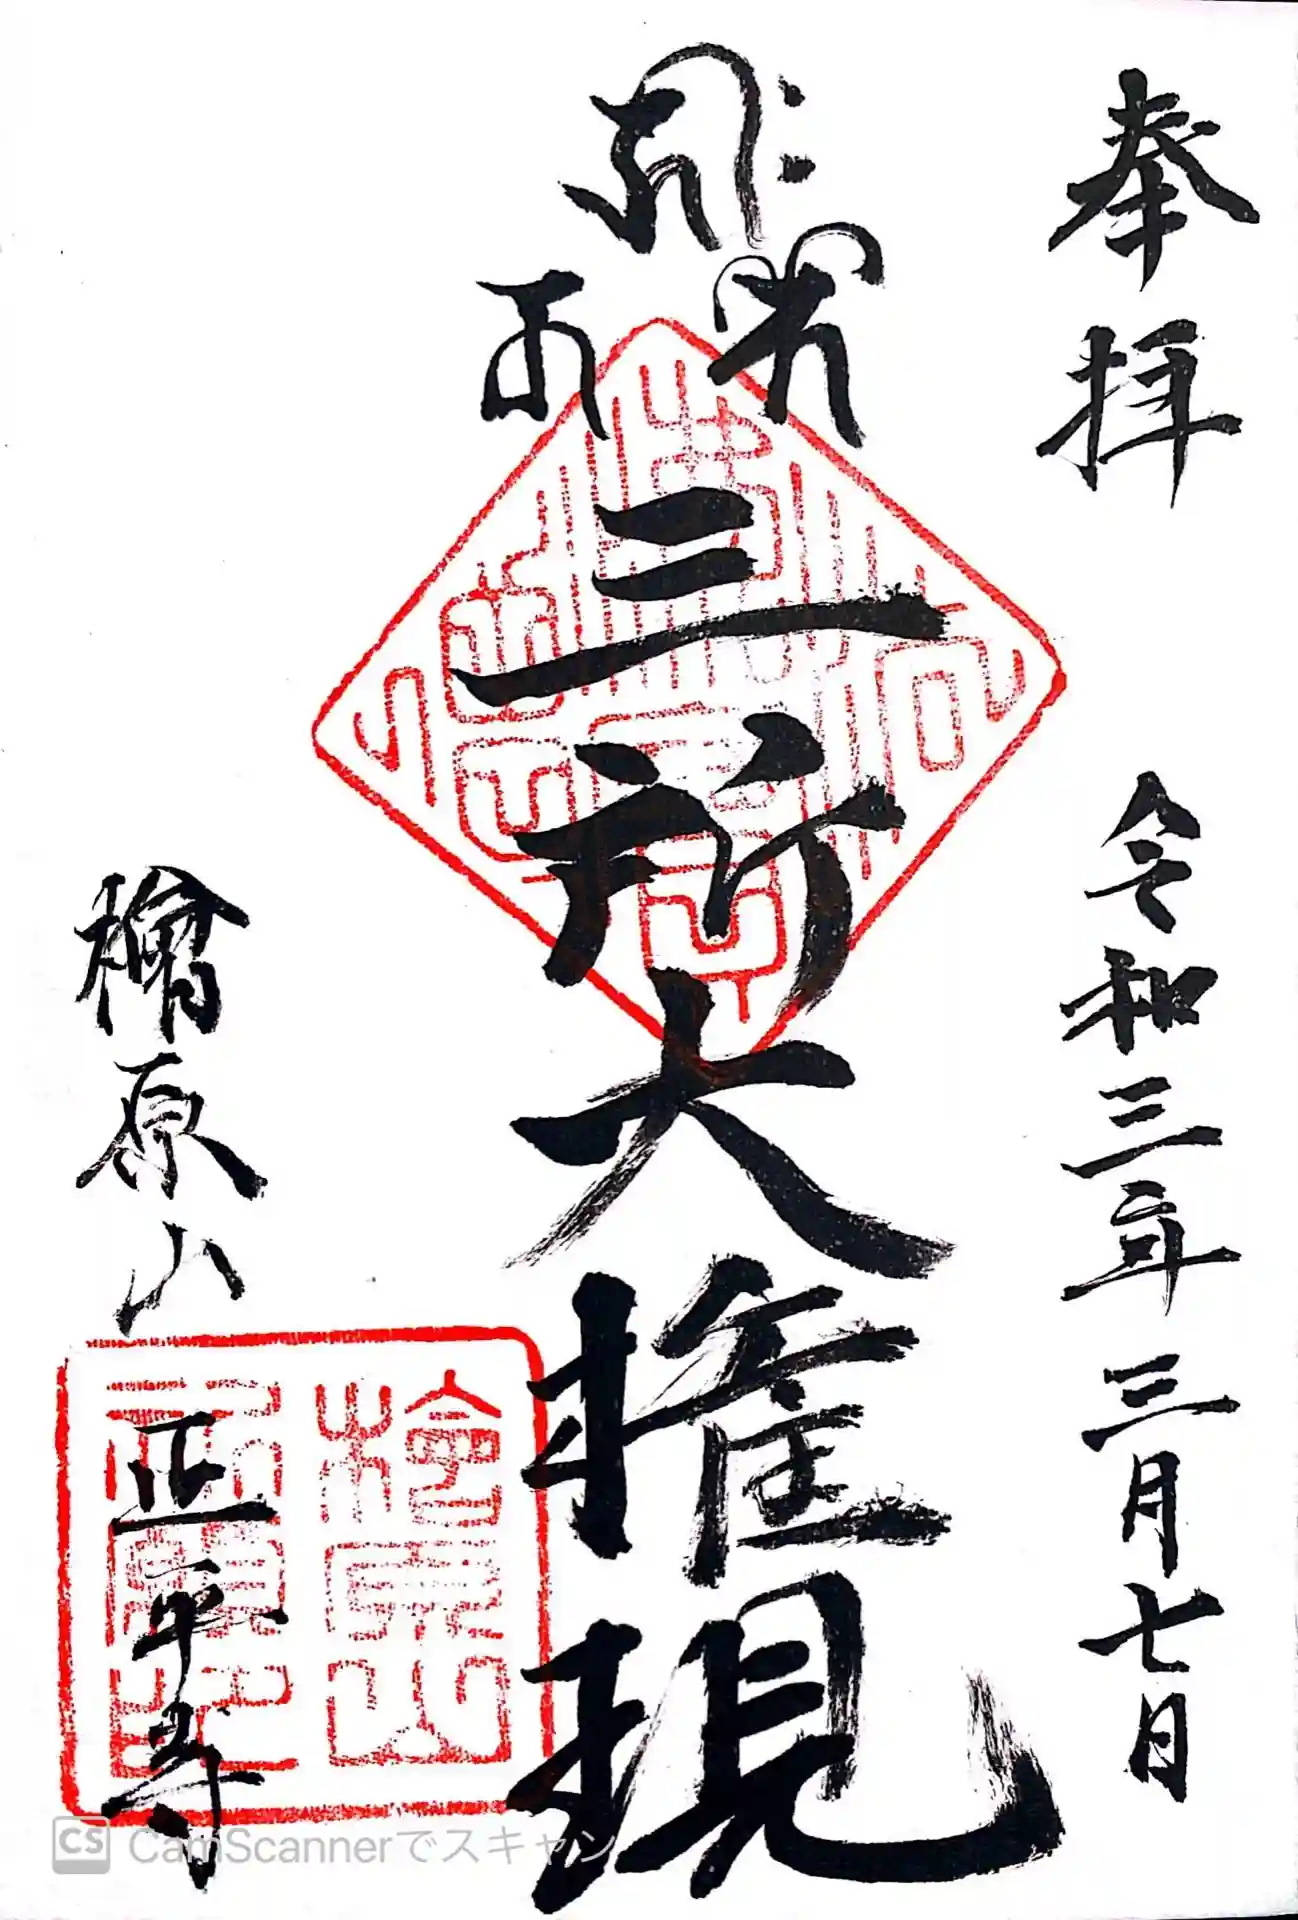 奉拝
令和三年三月七日
三所大権現
檜原山
正平寺
CS CamScannerでスキャン